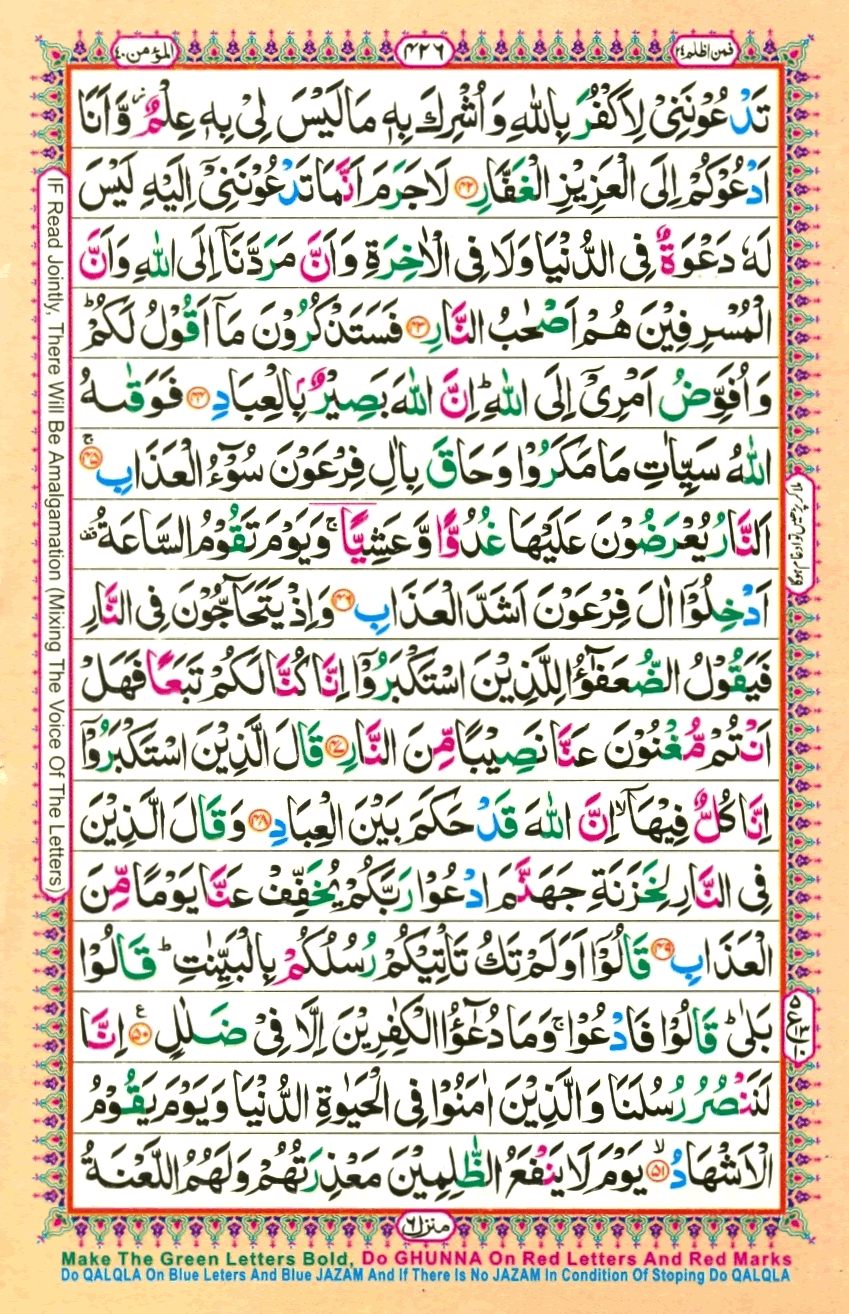 المؤمن ۴۰
۴۲۶
فمن اظلم ۲۴
تَدْعُوْنَنِیْ لِاَكْفُرَ بِاللّٰهِ وَ اُشْرِكَ بِهٖ مَا لَیْسَ لِیْ بِهٖ عِلْمٌ٘ وَّ اَنَا
اَدْعُوْكُمْ اِلَى الْعَزِیْزِ الْغَفَّارِ ۴۲ لَا جَرَمَ اَنَّمَا تَدْعُوْنَنِیْۤ اِلَیْهِ لَیْسَ
لَهٗ دَعْوَةٌ فِی الدُّنْیَا وَ لَا فِی الْاٰخِرَةِ وَ اَنَّ مَرَدَّنَاۤ اِلَى اللّٰهِ وَ اَنَّ
الْمُسْرِفِیْنَ هُمْ اَصْحٰبُ النَّارِ ۴۳ فَسَتَذْكُرُوْنَ مَاۤ اَقُوْلُ لَكُمْ ؕ
وَ اُفَوِّضُ اَمْرِیْۤ اِلَى اللّٰهِ ؕ اِنَّ اللّٰهَ بَصِیْرٌۢ بِالْعِبَادِ ۴۴ فَوَقٰىهُ
اللّٰهُ سَیِّاٰتِ مَا مَكَرُوْا وَ حَاقَ بِاٰلِ فِرْعَوْنَ سُوْٓءُ الْعَذَابِ ۴۵ ۚ
اَلنَّارُ یُعْرَضُوْنَ عَلَیْهَا غُدُوًّا وَّ عَشِیًّا ۚ وَ یَوْمَ تَقُوْمُ السَّاعَةُ ۫
اَدْخِلُوْۤا اٰلَ فِرْعَوْنَ اَشَدَّ الْعَذَابِ ۴۶ وَ اِذْ یَتَحَآجُّوْنَ فِی النَّارِ
فَیَقُوْلُ الضُّعَفٰٓؤُا لِلَّذِیْنَ اسْتَكْبَرُوْۤا اِنَّا كُنَّا لَكُمْ تَبَعًا فَهَلْ
اَنْتُمْ مُّغْنُوْنَ عَنَّا نَصِیْبًا مِّنَ النَّارِ ۴۷ قَالَ الَّذِیْنَ اسْتَكْبَرُوْۤا
اِنَّا كُلٌّ فِیْهَاۤ ۙ اِنَّ اللّٰهَ قَدْ حَكَمَ بَیْنَ الْعِبَادِ ۴۸ وَ قَالَ الَّذِیْنَ
فِی النَّارِ لِخَزَنَةِ جَهَنَّمَ ادْعُوْا رَبَّكُمْ یُخَفِّفْ عَنَّا یَوْمًا مِّنَ
الْعَذَابِ ۴۹ قَالُوْۤا اَوَ لَمْ تَكُ تَاْتِیْكُمْ رُسُلُكُمْ بِالْبَیِّنٰتِ ؕ قَالُوْا
بَلٰى ؕ قَالُوْا فَادْعُوْا ۚ وَ مَا دُعٰٓؤُا الْكٰفِرِیْنَ اِلَّا فِیْ ضَلٰلٍ ۵۰ ع اِنَّا
لَنَنْصُرُ رُسُلَنَا وَ الَّذِیْنَ اٰمَنُوْا فِی الْحَیٰوةِ الدُّنْیَا وَ یَوْمَ یَقُوْمُ
الْاَشْهَادُ ۵۱ ۙ یَوْمَ لَا یَنْفَعُ الظّٰلِمِیْنَ مَعْذِرَتُهُمْ وَ لَهُمُ اللَّعْنَةُ
IF Read Jointly, There Will Be Amalgamation (Mixing The Voice Of The Letters)
منزل ۶
Make The Green Letters Bold, Do GHUNNA On Red Letters And Red Marks
Do QALQLA On Blue Leters And Blue JAZAM And If There Is No JAZAM In Condition Of Stoping Do QALQLA